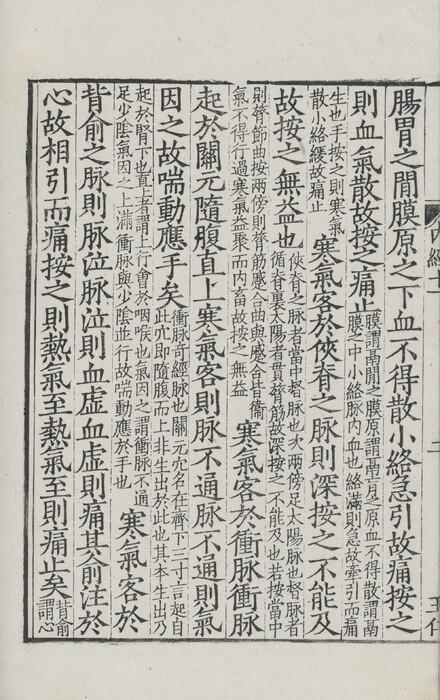 腸胃之間膜原之下血不得散小絡急引故痛按之
則血氣散故按之痛止
膜謂鬲間之膜原謂鬲肓之原血不得散謂鬲
膜之中小絡脉内血也絡滿則急故牽引而痛
生也手按之則寒氣
散小絡緩故痛止
寒氣客於俠脊之脉則深按之不能及
故按之無益也
俠脊之脉者當中督脉也次兩傍足太陽脉也督脉者
循脊裏太陽者貫膂筋故深按之不能及也若按當中
則膂節曲按兩傍則膂筋蹙合曲與蹙合皆衛
氣不得行過寒氣益聚而内畜故按之無益
寒氣客於衝脉衝脉
起於關元隨腹直上寒氣客則脉不通脉不通則氣
因之故喘動應手矣
衝脉奇經脉也關元穴名在齊下三寸言起自
此穴即隨腹而上非生出於此也其本生出乃
起於腎下也直上者謂上行會於咽喉也氣因之謂衝脉不通
足少陰氣因之上滿衝脉與少陰並行故喘動應於手也
寒氣客於
背俞之脉則脉泣脉泣則血虛血虛則痛其俞注於
心故相引而痛按之則熱氣至熱氣至則痛止矣
背俞
謂心